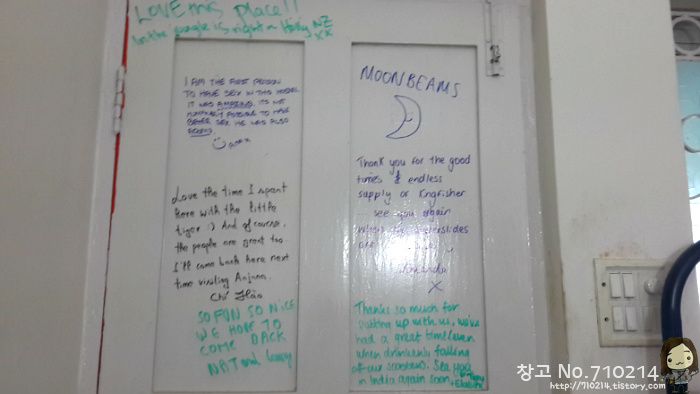 LOVE this place!!
NZ
xx
I AM THE FIRST PERSON
TO HAVE SEX IN THIS HOSTEL
IT WAS AMAZING. ITS NOT
HUMANLY POSSIBLE TO HAVE
BETTER SEX. HE WAS ALSO
Love the time I spent
here with the little
tiger :) And of course,
the people are great too
I'll come back here next
time visiting Anjuna.
Chi Hào
SO FUN SO NICE
WE HOPE TO
COME BACK
NAT and
MOONBEAMS
Thank you for the good
times & endless
supply of Kingfisher
see you again
when the waterslides
are
Amanda
X
Thanks so much for
putting up with us, we've
had a great time (even
when drunkenly falling
of our scooters). See you
in India again soon
창고 No.710214
http://710214.tistory.com/